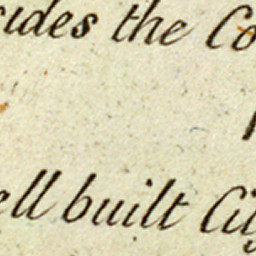 sides the Co
ell built City